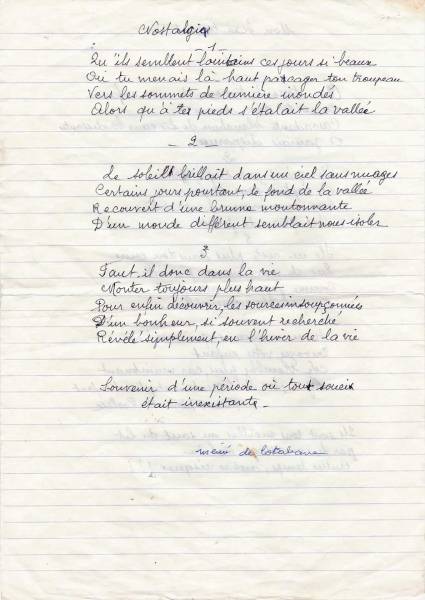 Nostalgie
1
Qu'ils semblent lointains ces jours si beaux
Où tu menais là haut pacager ton troupeau
Vers les sommets de lumière inondés
Alors qu'à tes pieds s'étalait la vallée
2
Le soleil brillait dans un ciel sans nuages
Certains jours pourtant, le fond de la vallée
Recouvert d'une brume moutonnante
D'un monde différent semblait nous isoler
3
Faut il donc dans la vie
Monter toujours plus haut
Pour enfin découvrir, les sources insoupçonnées
D'un bonheur, si souvent recherché
Révélé simplement, en l'hiver de la vie
Souvenir d'une période où tout soucis
était inexistante